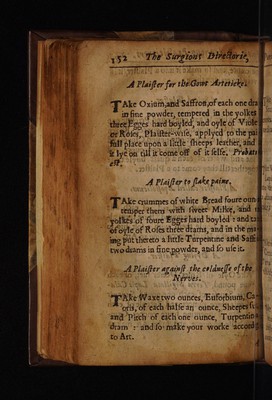 152 The Surgions Directorie,
A Plaister for the Gout Arteticke.
TAke Oxium, and Saffron, of each one dra
in fine powder, tempered in the yolkes
three Egges hard boyled, and oyle of Viole
er Roses, Plaister-wise, applyed to the pai
full place upon a little sheeps leather, and
it lye on till it come off of it selfe. Probat
est.
A Plaister to slake paine.
TAke crummes of white Bread foure oun
temper them with sweet Milke, and t
yolkes of foure Egges hard boyled: and ta
of oyle of Roses three drams, and in the ma
ing put thereto a little Turpentine and Saffr
two drams in fine powder, and so use it.
A Plaister against the coldnesse of the
Nerves.
TAke Waxe two ounces, Euforbium, Ca-
oris, of each halfe an ounce, Sheepes su
and Pitch of each one ounce, Turpentine
dram: and so make your worke accord
to Art.